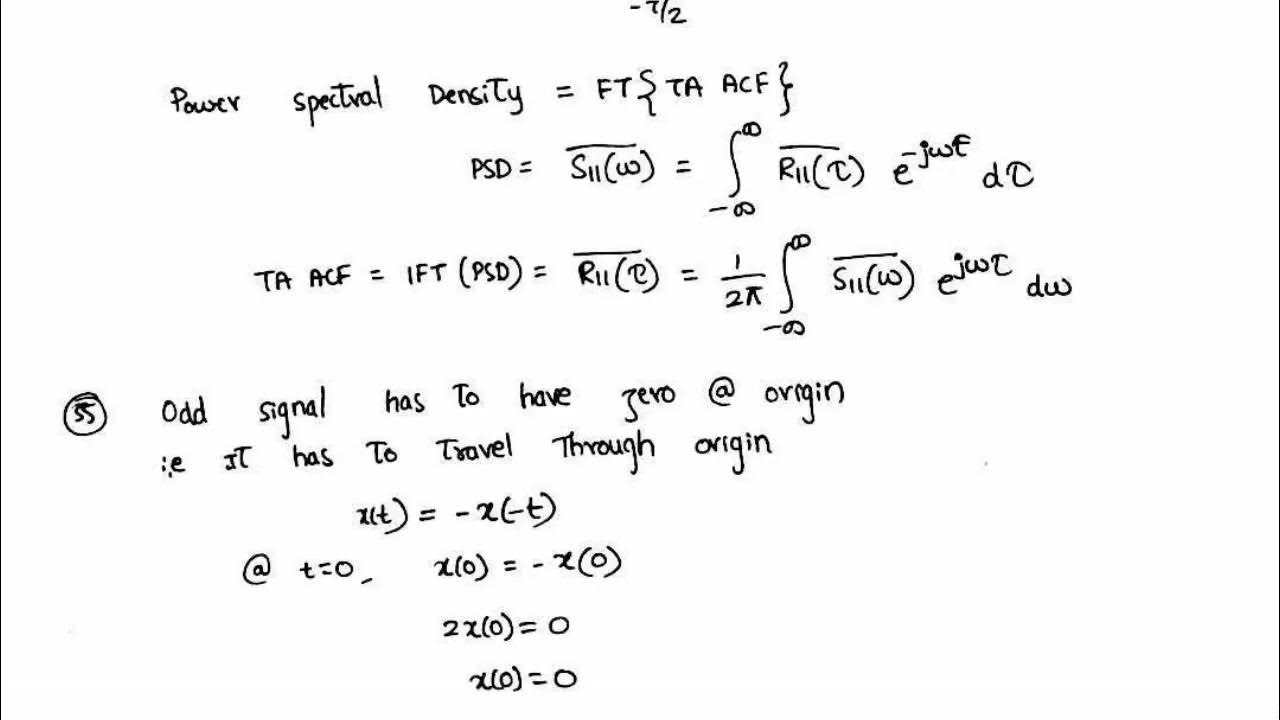 -τ/2
Power spectral Density = FT{TA ACF}
PSD = \overline{S₁₁(ω)} = ∫_{-∞}^{∞} \overline{R₁₁(τ)} e^{-jωτ} dτ
TA ACF = IFT (PSD) = \overline{R₁₁(τ)} = 1/2π ∫_{-∞}^{∞} \overline{S₁₁(ω)} e^{jωτ} dω
55 Odd signal has To have zero @ origin
i.e IT has To Travel Through origin
x(t) = -x(-t)
@ t=0, x(0) = -x(0)
2x(0) = 0
x(0) = 0